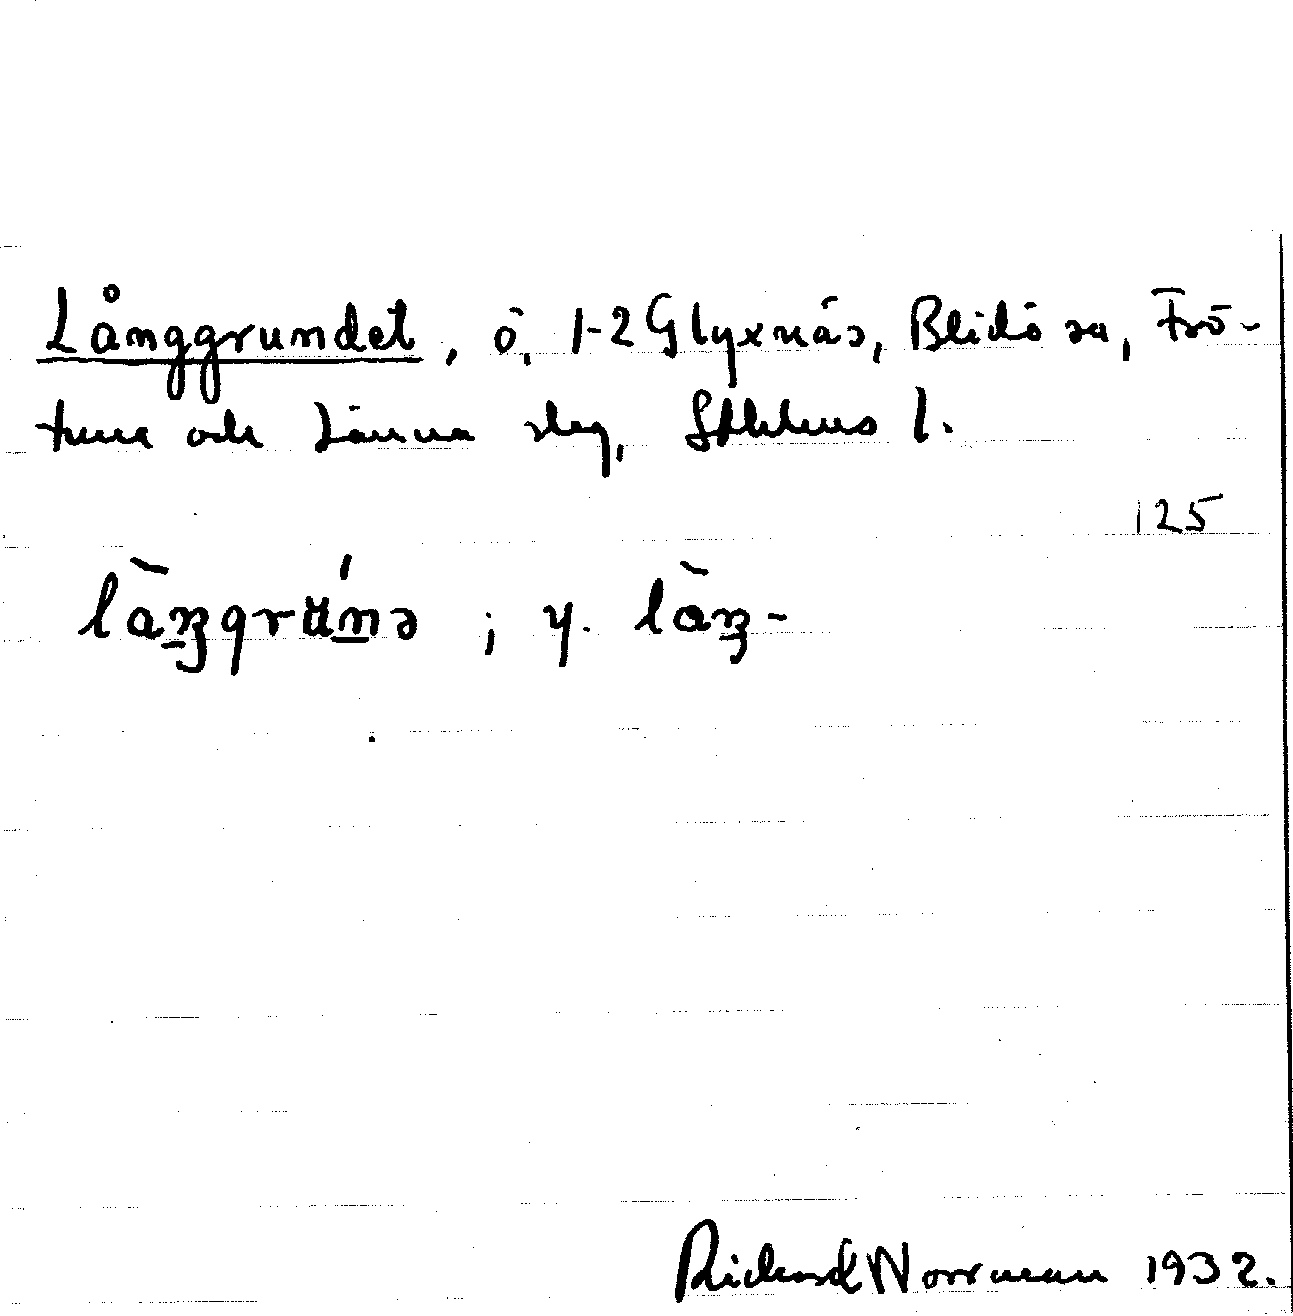 Långgrundet, ö, 1-2 Glyxnäs, Blidö sn, Frö-
tuna och Länna slg, Sthlms l.
125
là̄ŋgrʉ́nə ; y. là̄ŋ-
Richard Norrman 1932.